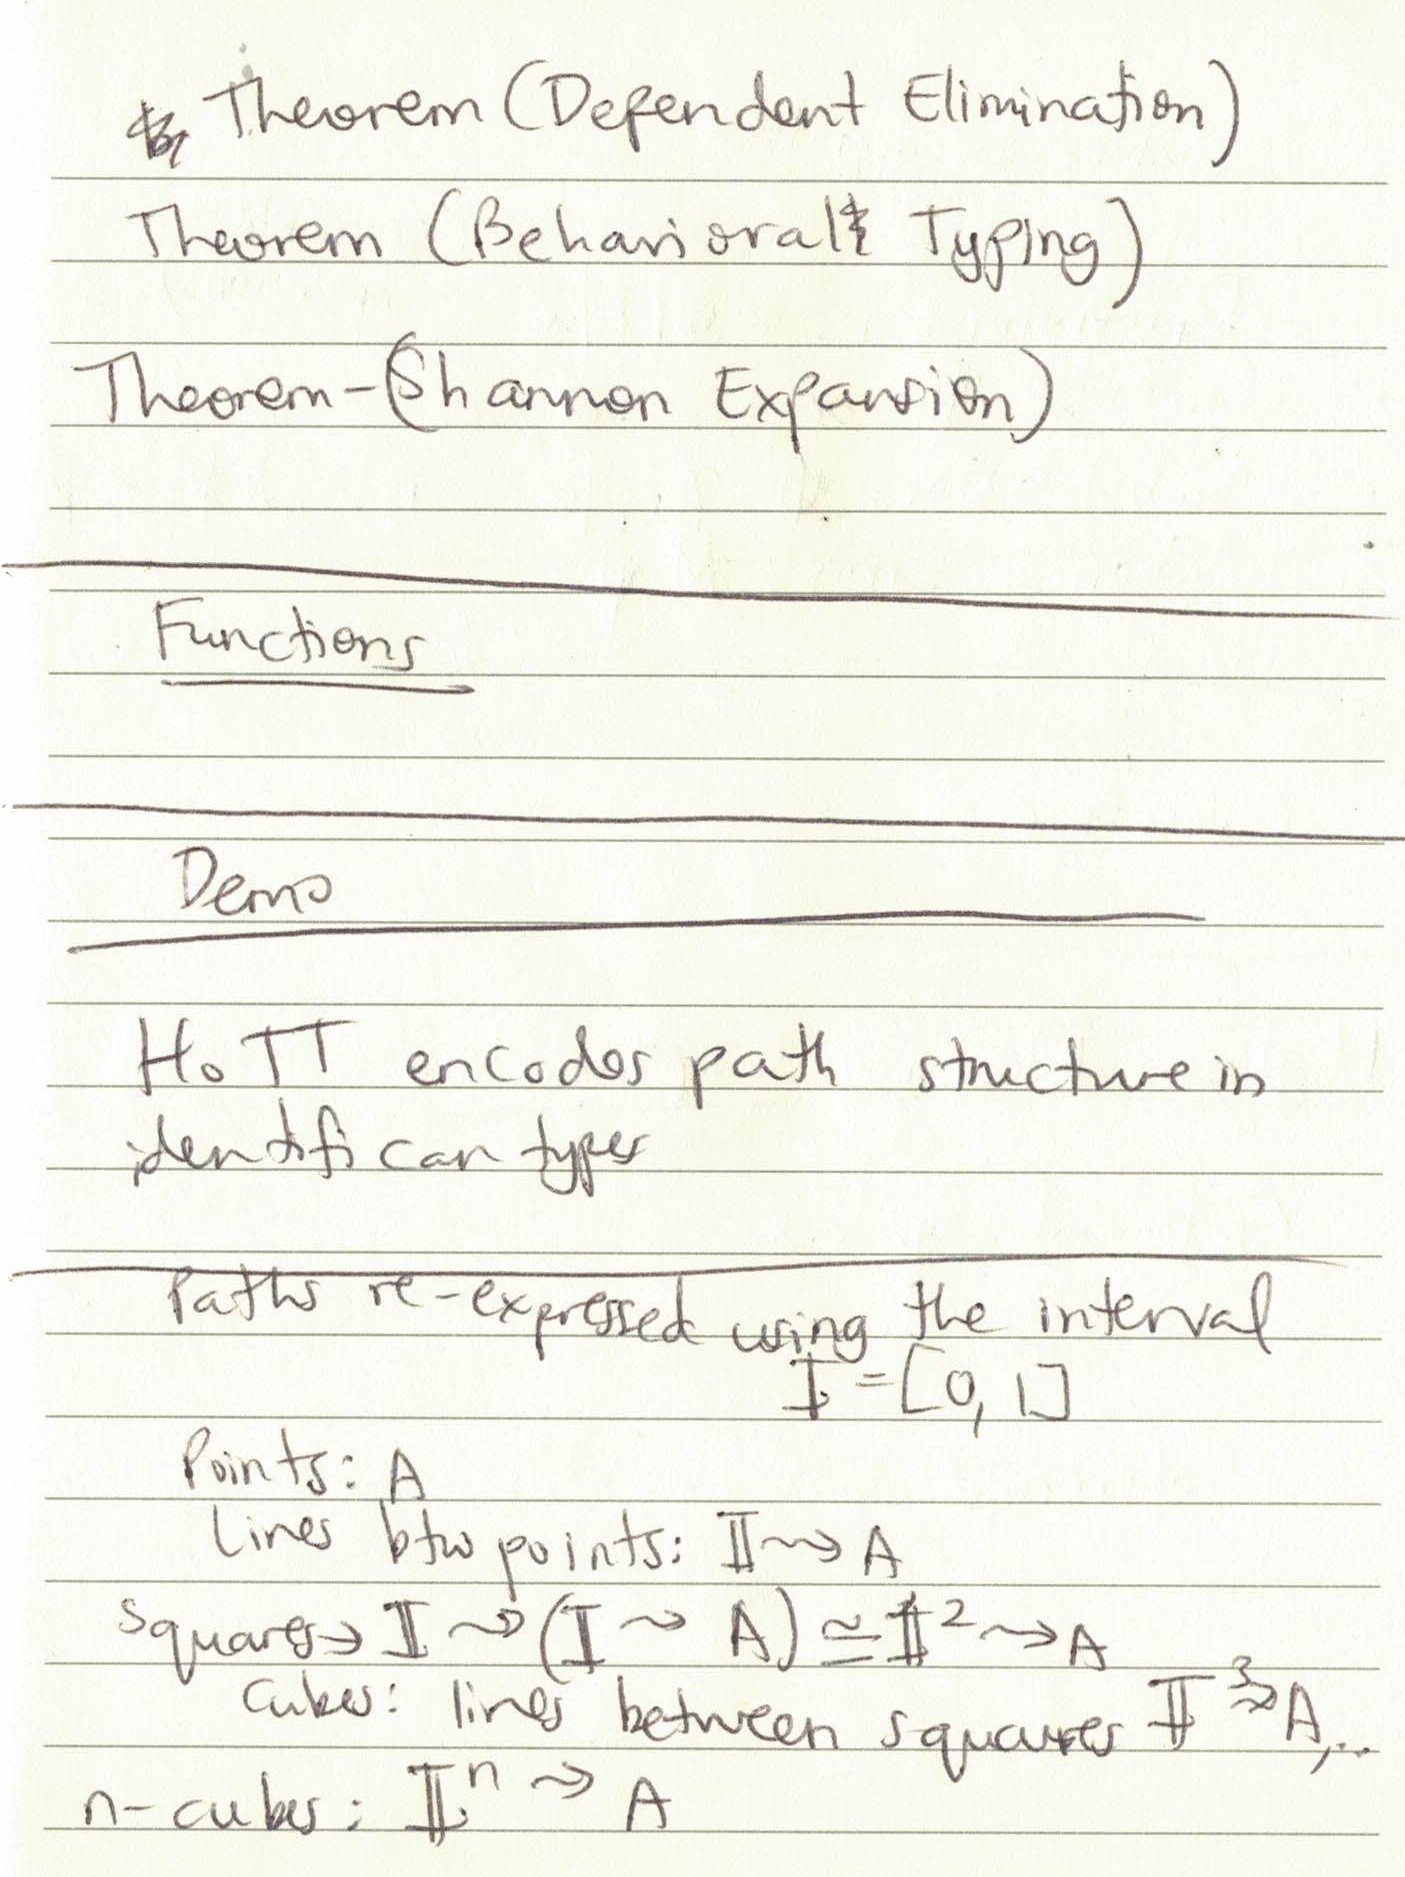 Theorem (Dependent Elimination)
Theorem (Behavioral Typing)
Theorem - (Shannon Expansion)
Functions
Demo
HoTT encodes path structure in
identifican types
Paths re-expressed using the interval
𝕀 = [0, 1]
Points: A
Lines btw points: 𝕀 ⇝ A
squares → 𝕀 ⇝ (𝕀 ⇝ A) ≃ 𝕀² ⇝ A
Cubes: lines between squares 𝕀³ ⇝ A, ..
n-cubes: 𝕀ⁿ ⇝ A